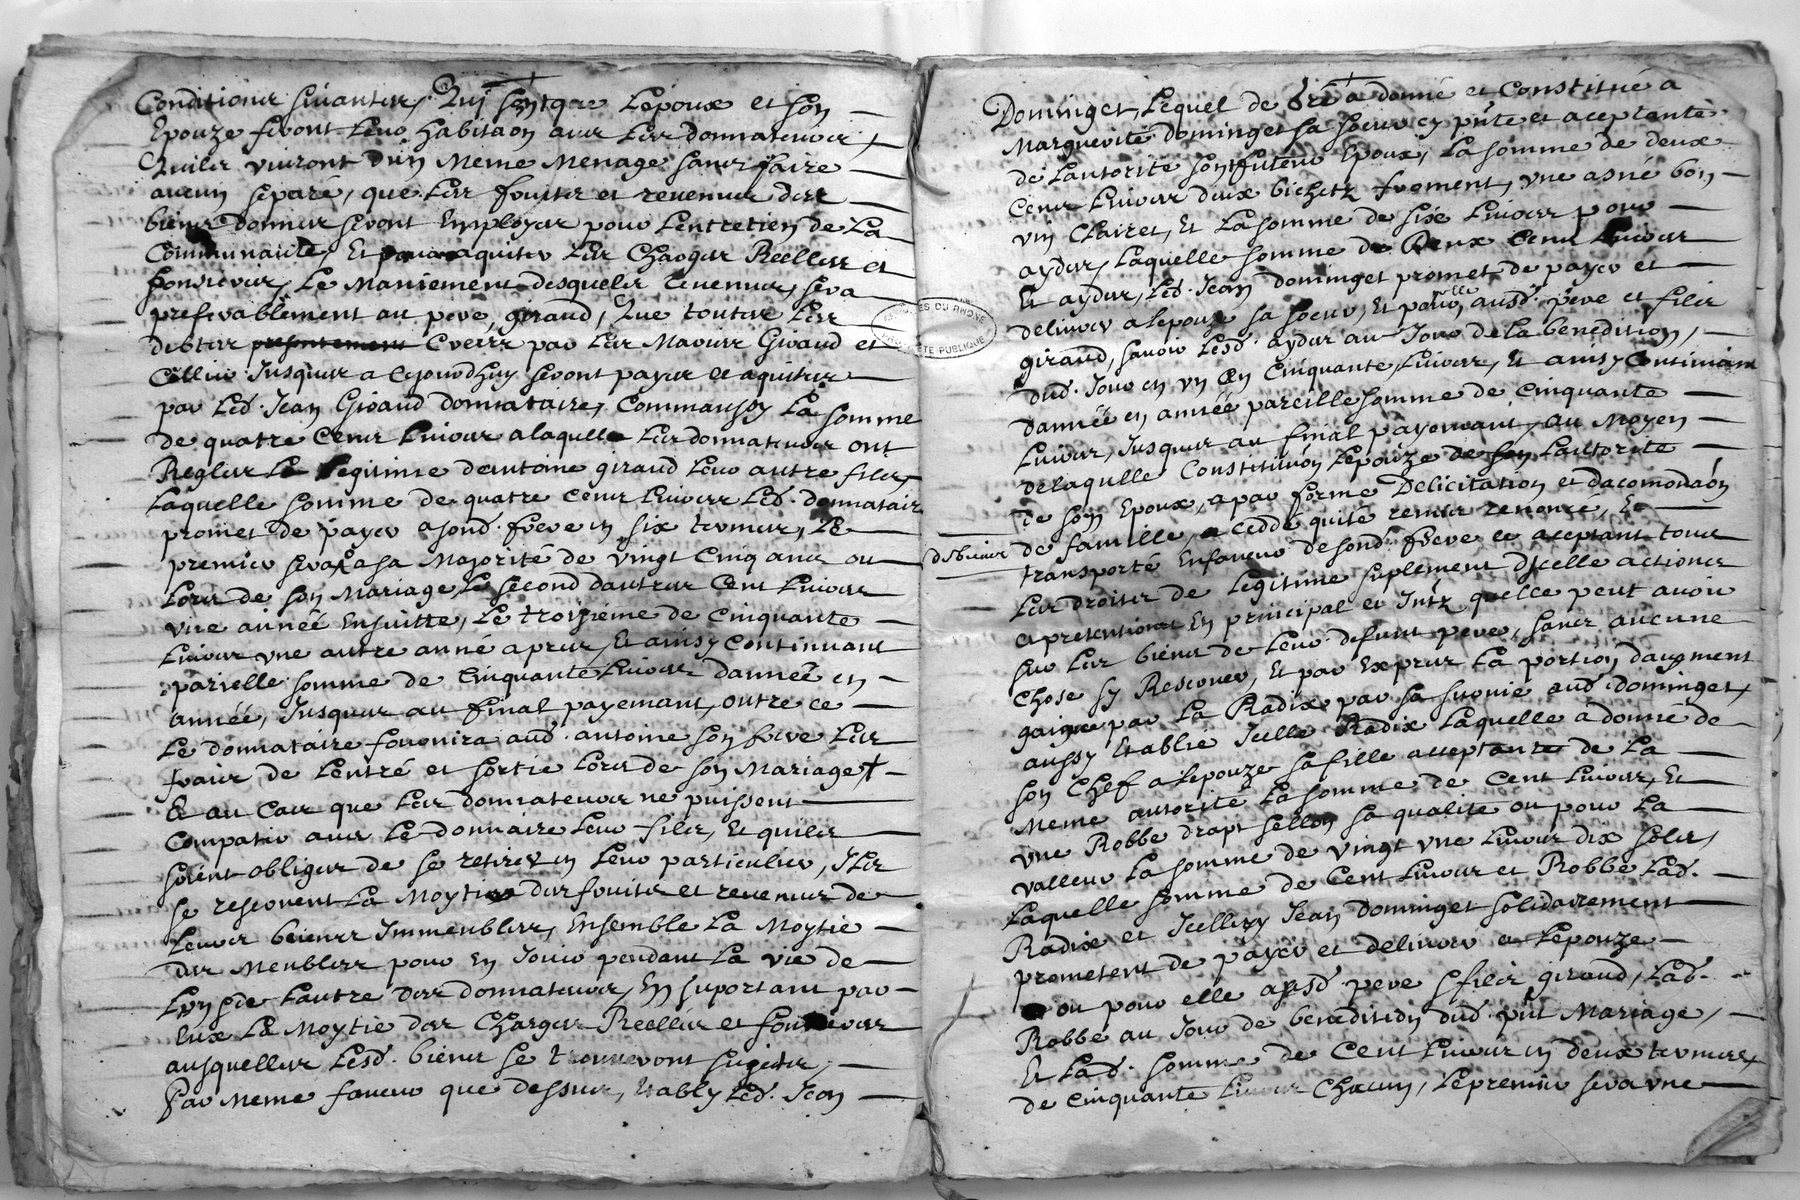 Conditions suivantes, Qui sont que L'epoux et son
Epouze feront Leur habitaon avec Les donnateurs,
Quiles vivront d'un Meme Menage sans faire
aucun separé, que Les fruits et revenus des
biens donnes seront Employes pour Lentretien de La
Communauté, Et pour aquiter Les Charges Reelles et
fonsieres, Le Maniement desquels revenus, sera
preferablement au pere giraud, Que toutes Les
debtes presentement Crees par Les Maries Giraud et
Collin Jusques a Cejourdhuy seront payes et aquites
par Led. Jean Giraud donnataire, Commaussy La somme
de quatre Cens Livres a laquelle Les donnateurs ont
Regles La Legitime dantoine giraud Leur autre fils,
Laquelle somme de quatre cens Livres Led. donnatair
promet de payer a sond. frere en six termes, Le
premier sera a sa Majorité de vingt Cinq ans ou
Lors de son Mariage, Le second dautres Cent Livres
une année Ensuitte, Le troisieme de Cinquante
Livres une autre anné apres, Et ainsy Continuant
parielle somme de Cinquante Livres dannée en
année, Jusques au final payemant, outre ce
Le donnataire fournira aud. antoine son frere Les
frais de Lentré et sortie Lors de son Mariage +
Et au Cas que Les donnateurs ne puissent
Compatir avec Le donnaire Leur fils, Et quiles
soient obliges de se retirer en Leur particulier, Iles
se reservent La Moytie des fruits et revenus de
Leurs biens Immeubles, Ensemble La Moytie
des Meubles pour En Jouir pendant La vie de
Lun de Lautre des donnateurs, En suportant par
Eux La Moytie des Charges Reelles et fonsieres
ausquelles Lesd. biens se trouveront sugetes,
Par Meme faveur que dessus, Etably Led. Jean
ARCHIVES DU RHONE
PROPRIETE PUBLIQUE
Dominget, Lequel de gré a donné et Constitué a
Marguerite dominget sa soeur cy pnte et aceptente
de Lautorité son futeur Epoux, La somme de deux
Cens Livres deux bichetz froment, une asné bon
vin Clairet, Et La somme de six Livres pour
aydes, Laquelle somme de Deux Cens Livres
Et aydes, Led. Jean dominget promet de payer et
delivrer a Lepouze sa soeur, Et pour elle ausd. pere et fils
giraud, savoir Lesd. aydes au Jour de La benedition,
dud. Jour en un an Cinquante Livres, Et ainsy Continuant
dannée en année pareille somme de Cinquante
Livres, Jusques au final payemant, au Moyen
de laquelle Constitution Lepouze de son Lautorite
de son Epoux, a par forme Delicitation et dacomodaon
de famille, a Cedde quité remis renoncé, Et
dsbiens
transporté Enfaveur de sond. frere ce aceptant tous
Les droits de Legitime suplement dicelle actions
et pretentions En principal et Intz quelle peut avoir
sur Les biens de Leur defunt pere, sans aucune
Chose sy Reserver, Et par Expres La portion daugment
gaigné par La Radix par sa survie aud. dominget,
aussy Etablie Icelle Radix Laquelle a donné de
son Chef a Lepouze sa fille acceptante de La
Meme autorite La somme de Cent Livres, Et
une Robbe drapt sellon sa qualite ou pour La
valleur La somme de vingt une Livres dix sols,
Laquelle somme de Cent Livres et Robbe Lad.
Radix et Icelluy Jean Dominget solidairement
prometent de payer et delivrer a Lepouze
ou pour elle ausd. pere et fils giraud, Lad.
Robbe au Jour de benedition dud. pnt Mariage,
Et Lad. somme de Cent Livres en deux termes,
de Cinquante Livres Chacun, Lepremier sera une